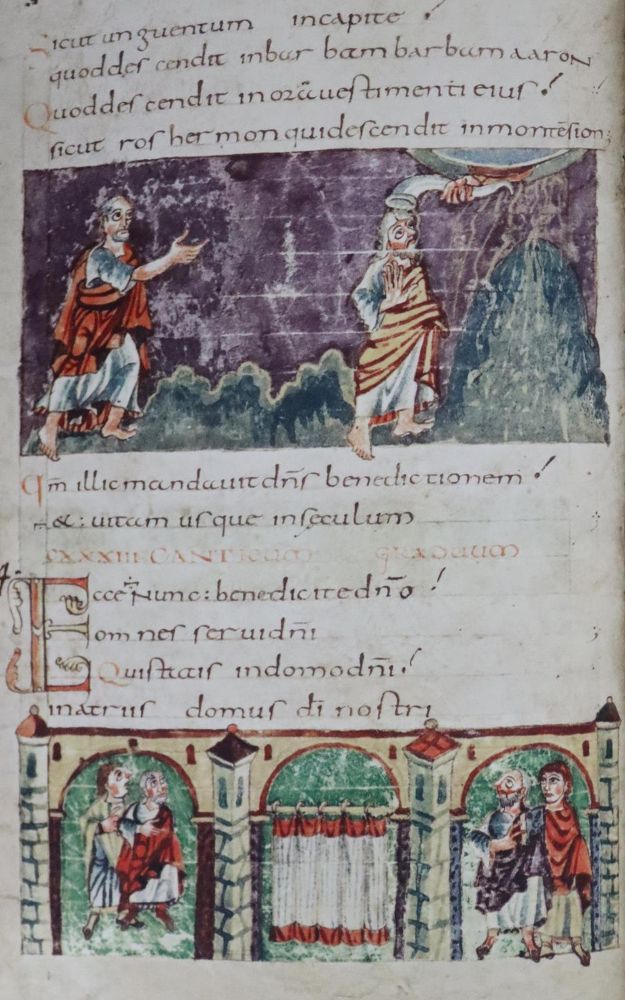 Sicut unguentum in capite!
quod descendit in barbam barbam aaron
Quod descendit in orā uestimenti eius!
sicut ros hermon qui descendit in montē sion;
Qm̄ illic mandauit dn̄s benedictionem!
&: uitam usque in seculum
CXXXIII CANTICUM GRADUUM
Ecce Nunc: benedicite dn̄o!
omnes serui dn̄i
Qui statis in domo dn̄i!
in atriis domus dī nostri